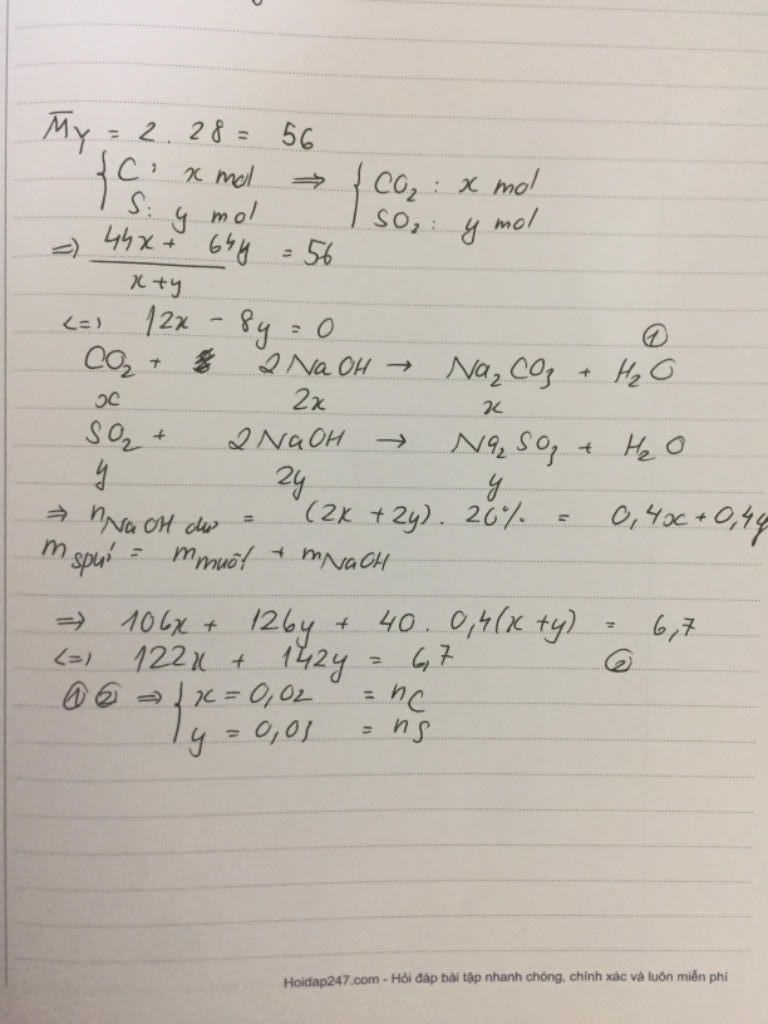 M̅Y = 2 . 28 = 56
{ C: x mol => { CO2 : x mol
S: y mol SO2 : y mol
=> (44x + 64y) / (x+y) = 56
<=> 12x - 8y = 0 ①
CO2 + 2NaOH → Na2CO3 + H2O
x 2x x
SO2 + 2NaOH → Na2SO3 + H2O
y 2y y
=> nNaOH dư = (2x + 2y) . 20% = 0,4x + 0,4y
mspứ = mmuối + mNaOH
=> 106x + 126y + 40 . 0,4(x + y) = 6,7
<=> 122x + 142y = 6,7 ②
①② => { x = 0,02 = nC
y = 0,03 = nS
Hoidap247.com - Hỏi đáp bài tập nhanh chóng, chính xác và luôn miễn phí